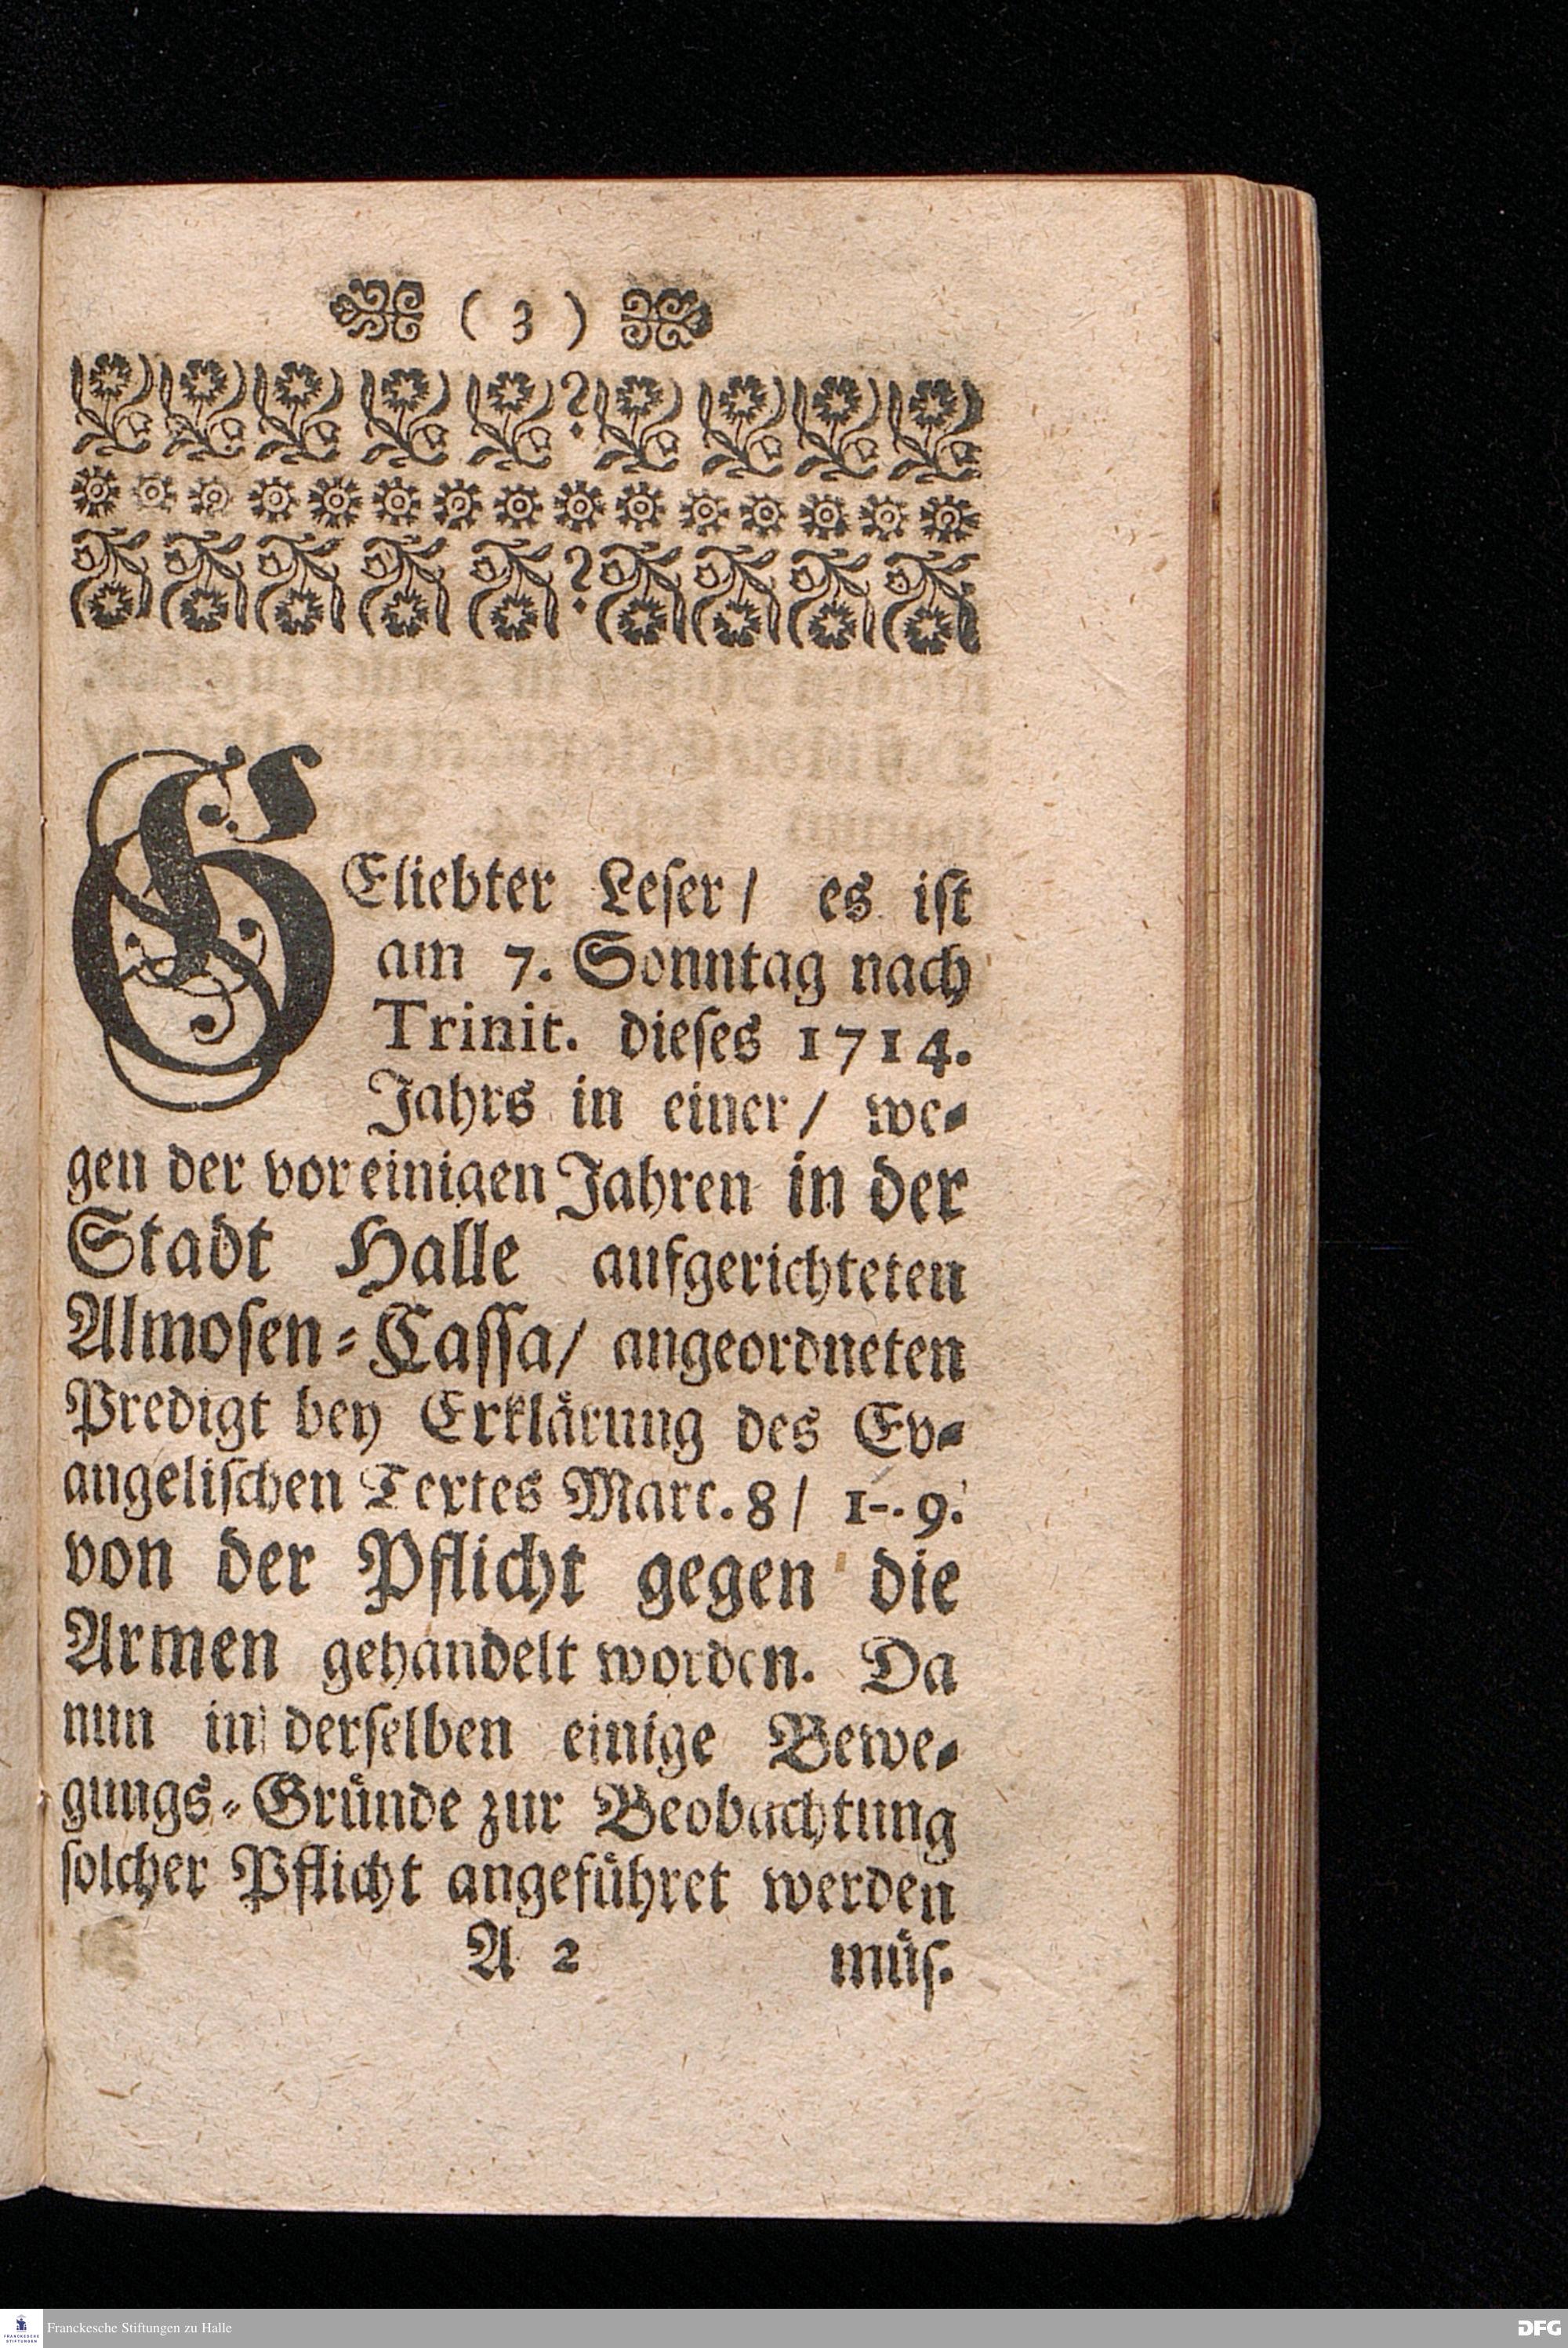 ( 3 )
GEliebter Leser/ es ist
am 7. Sonntag nach
Trinit. dieses 1714.
Jahrs in einer/ we-
gen der vor einigen Jahren in der
Stadt Halle aufgerichteten
Almosen-Cassa/ angeordneten
Predigt bey Erklärung des Ev-
angelischen Textes Marc. 8/ 1-.9.
von der Pflicht gegen die
Armen gehandelt worden. Da
nun in derselben einige Bewe-
gungs-Gründe zur Beobachtung
solcher Pflicht angeführet werden
A 2 müs.
Franckesche Stiftungen zu Halle
FRANCKESCHE
STIFTUNGEN
DFG